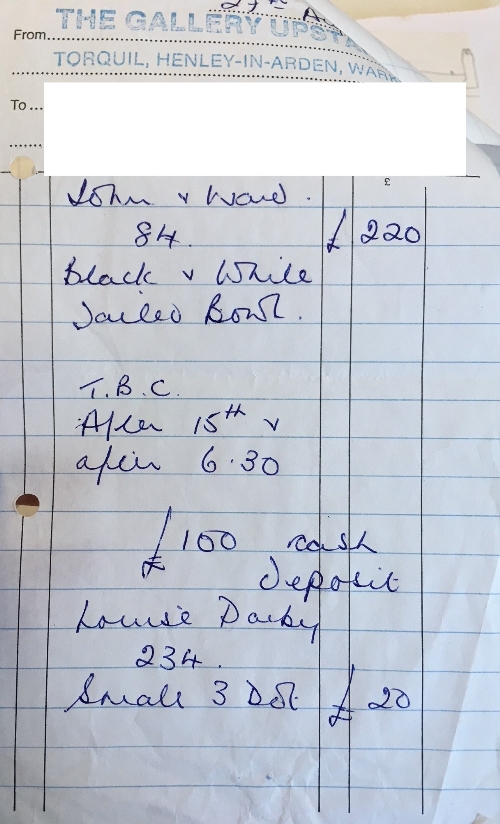 27th
THE GALLERY UPSTA
From...
TORQUIL, HENLEY-IN-ARDEN, WARK
To...
£
John & Ward.
84. £ 220
Black & White
Bowl.
T.B.C.
After 15th &
after 6.30
£100 cash
deposit
Louise Darby
234.
Small 3 Dot £ 20